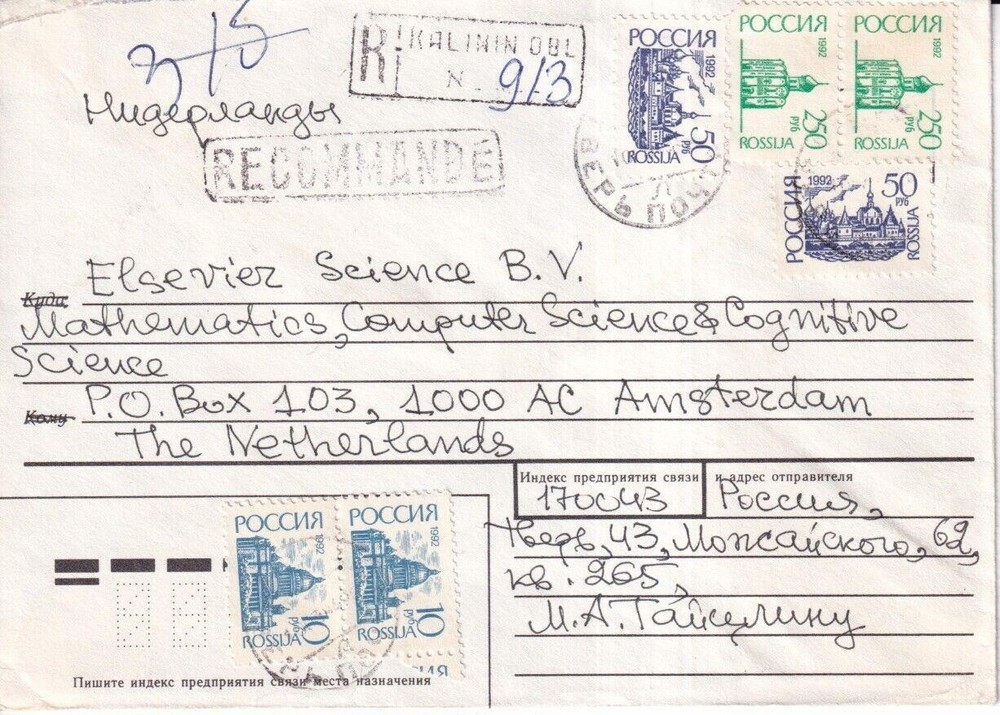 3/5
R KALININ OBL
N 913
Нидерланды
RECOMMANDÉ
РОССИЯ 1992 50 руб ROSSIJA
РОССИЯ 1992 250 руб ROSSIJA
РОССИЯ 1992 250 руб ROSSIJA
РОССИЯ 1992 50 руб ROSSIJA
ВЕРЬ ПОЧ
Elsevier Science B.V.
Куда
Mathematics, Computer Science & Cognitive
Science
Кому P.O. Box 103, 1000 AC Amsterdam
The Netherlands
Индекс предприятия связи и адрес отправителя
170043 Россия,
Тверь, 43, Можайского, 62,
кв. 265,
М.А.
РОССИЯ 1992 10 руб ROSSIJA
РОССИЯ 1992 10 руб ROSSIJA
ССИЯ
Пишите индекс предприятия связи места назначения